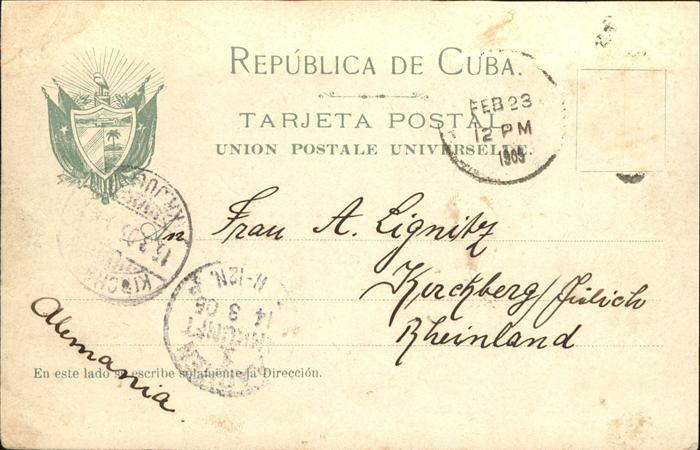 REPÚBLICA DE CUBA.
TARJETA POSTAL
UNION POSTALE UNIVERSELLE.
FEB 23
12 PM
1905
An Frau A. Lignitz
Kirchberg/Jülich
Rheinland
Alemania.
11-12N.
14 3 05
ANKUNFT
En este lado se escribe solamente la Dirección.